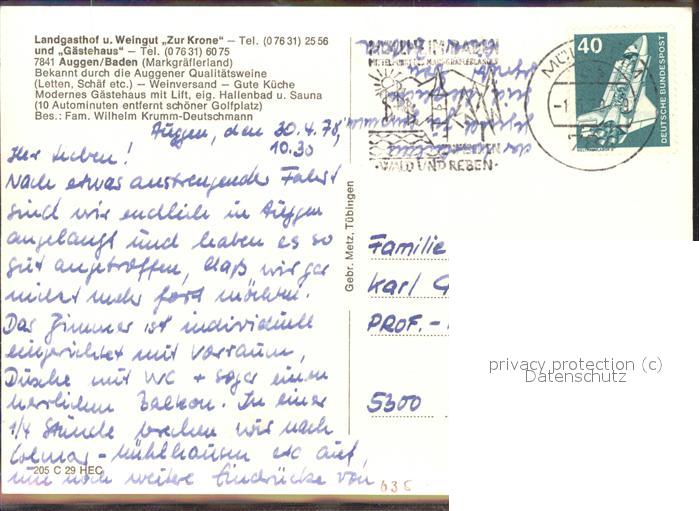 Landgasthof u. Weingut „Zur Krone" – Tel. (0 76 31) 25 56
und „Gästehaus" – Tel. (0 76 31) 60 75
7841 Auggen/Baden (Markgräflerland)
Bekannt durch die Auggener Qualitätsweine
(Letten, Schäf etc.) – Weinversand – Gute Küche
Modernes Gästehaus mit Lift, eig. Hallenbad u. Sauna
(10 Autominuten entfernt schöner Golfplatz)
Bes.: Fam. Wilhelm Krumm-Deutschmann
Auggen, den 30.4.78,
10.30
Ihr Lieben!
Nach etwas anstrengender Fahrt
sind wir endlich in Auggen
angelangt und haben es so
gut angetroffen, daß wir gar
nicht mehr fort möchten.
Das Zimmer ist individuell
eingerichtet mit Vorraum,
Dusche mit WC + sogar einen
herrlichen Balkon. In einer
1/4 Stunde brechen wir nach
Colmar - Mühlhausen etc auf,
um noch weitere Eindrücke von
205 C 29 HEC
Gebr. Metz, Tübingen
MÜLLHEIM/BADEN
WALD UND REBEN
40
DEUTSCHE BUNDESPOST
Familie
Karl G
PROF.-
5300
privacy protection (c)
Datenschutz
636